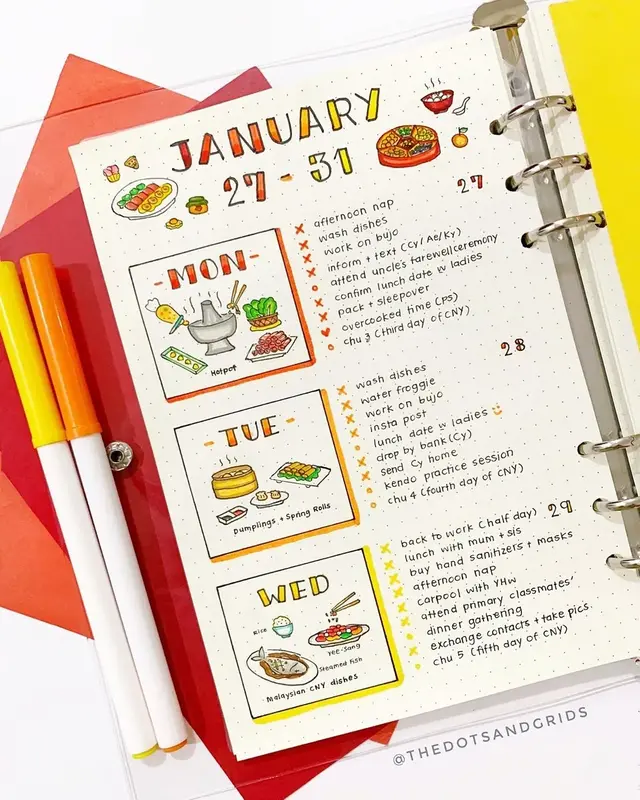 JANUARY
27 - 31
27
MON
Hotpot
afternoon nap
wash dishes
work on bujo
inform + text (Cy/Ae/Ky)
attend uncle's farewell ceremony
confirm lunch date w ladies
pack + sleepover
overcooked time (PS)
chu 3 (third day of CNY)
28
TUE
Dumplings + Spring Rolls
wash dishes
water froggie
work on bujo
insta post
lunch date w ladies
drop by bank (Cy)
send Cy home
kendo practice session
chu 4 (fourth day of CNY)
29
WED
Rice
Yee-Sang
Steamed Fish
Malaysian CNY dishes
back to work (half day)
lunch with mum + sis
buy hand sanitizers + masks
afternoon nap
carpool with YHw
attend primary classmates'
dinner gathering
exchange contacts + take pics.
chu 5 (fifth day of CNY)
@THEDOTSANDGRIDS